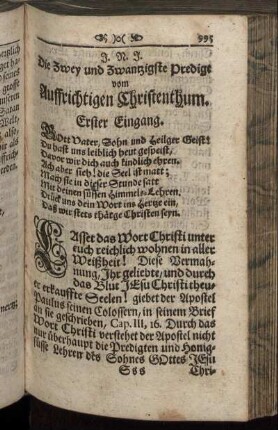 995
J. N. J.
Die Zwey und Zwantzigste Predigt
vom
Auffrichtigen Christenthum.
Erster Eingang.
GOtt Vater, Sohn und Heilger Geist!
Du hast uns leiblich heut gespeist,
Davor wir dich auch kindlich ehren.
Ach aber sieh! die Seel ist matt;
Mach sie in dieser Stunde satt
Mit deinen süssen Himmels-Lehren,
Drück uns dein Wort ins Hertze ein,
Daß wir stets thätge Christen seyn.
LAsset das Wort Christi unter
euch reichlich wohnen in aller
Weißheit! Diese Vermah-
nung, Ihr geliebte, und durch
das Blut JEsu Christi theu-
er erkauffte Seelen! giebet der Apostel
Paulus seinen Colossern, in seinem Brief
an sie geschrieben, Cap. III, 16. Durch das
Wort Christi verstehet der Apostel nicht
nur überhaupt die Predigten und Honig-
süsse Lehren des Sohnes GOttes JEsu
Sss Chri-